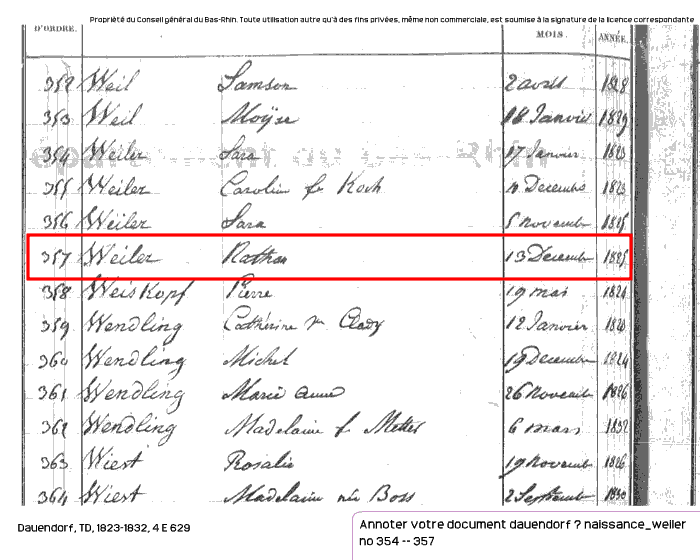 Propriété du Conseil général du Bas-Rhin. Toute utilisation autre qu'à des fins privées, même non commerciale, est soumise à la signature de la licence correspondante
D'ORDRE. MOIS. ANNÉE.
352 Weil Samson 2 avril 1828
353 Weil Moÿse 18 Janvier 1829
354 Weiler Sara 17 Janvier 1823
355 Weiler Caroline f Koch Decembre 1823
356 Weiler Sara 5 Novembre 1825
357 Weiler Nathan 13 Decembr 1825
358 Weiskopf Pierre 19 mai 1824
359 Wendling Cathérine 12 Janvier
360 Wendling Michel 19 Decembre 1824
361 Wendling Marie anne 26 Novemb 1826
362 Wendling Madelaine f 6 mars 1832
363 Wiest Rosalie 19 Novemb 1826
364 Wiest Madelaine née Boss 2 Septemb 1830
Dauendorf, TD, 1823-1832, 4 E 629
Annoter votre document dauendorf ? naissance_weiler
no 354 -- 357